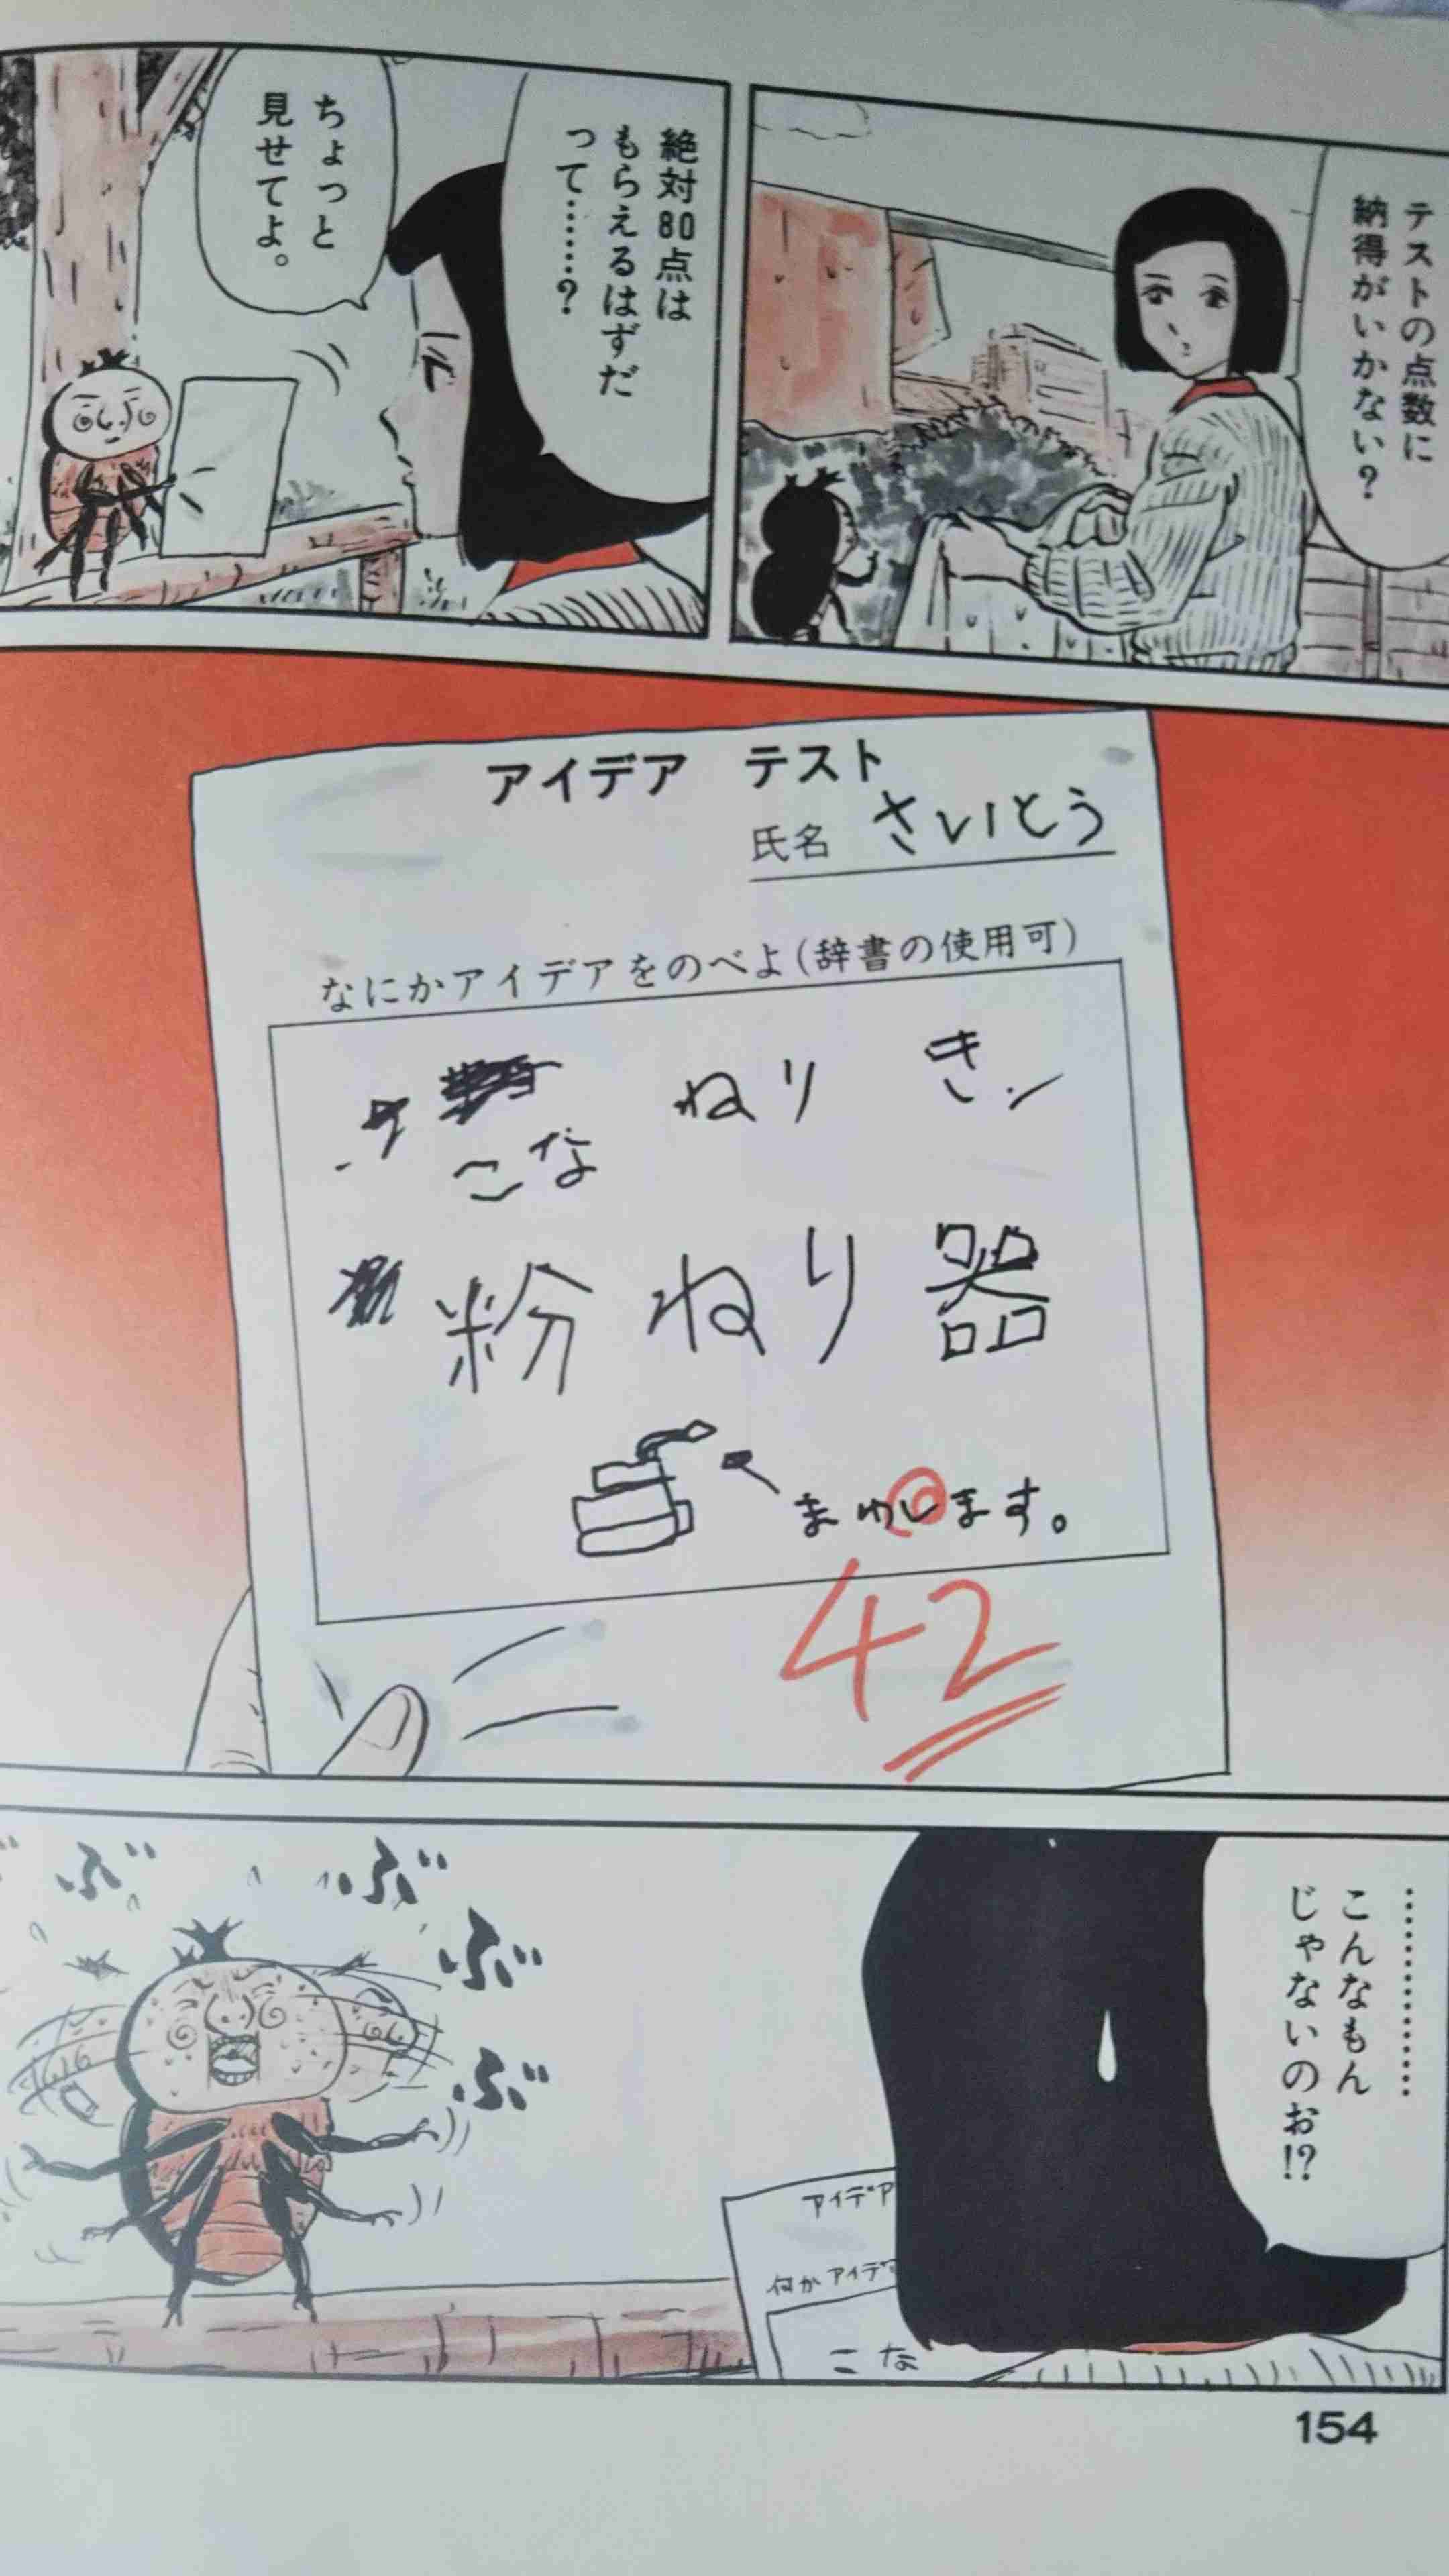 テストの点数に
納得がいかない?
絶対80点は
もらえるはずだ
って……?
ちょっと
見せてよ。
アイデア テスト
氏名 さいとう
なにかアイデアをのべよ(辞書の使用可)
こな ねり き
粉ねり器
まわします。
42
…………
こんなもん
じゃないのお!?
ぶ
ぶ
ぶ
ぶ
アイデア
何かアイデ
こな
154